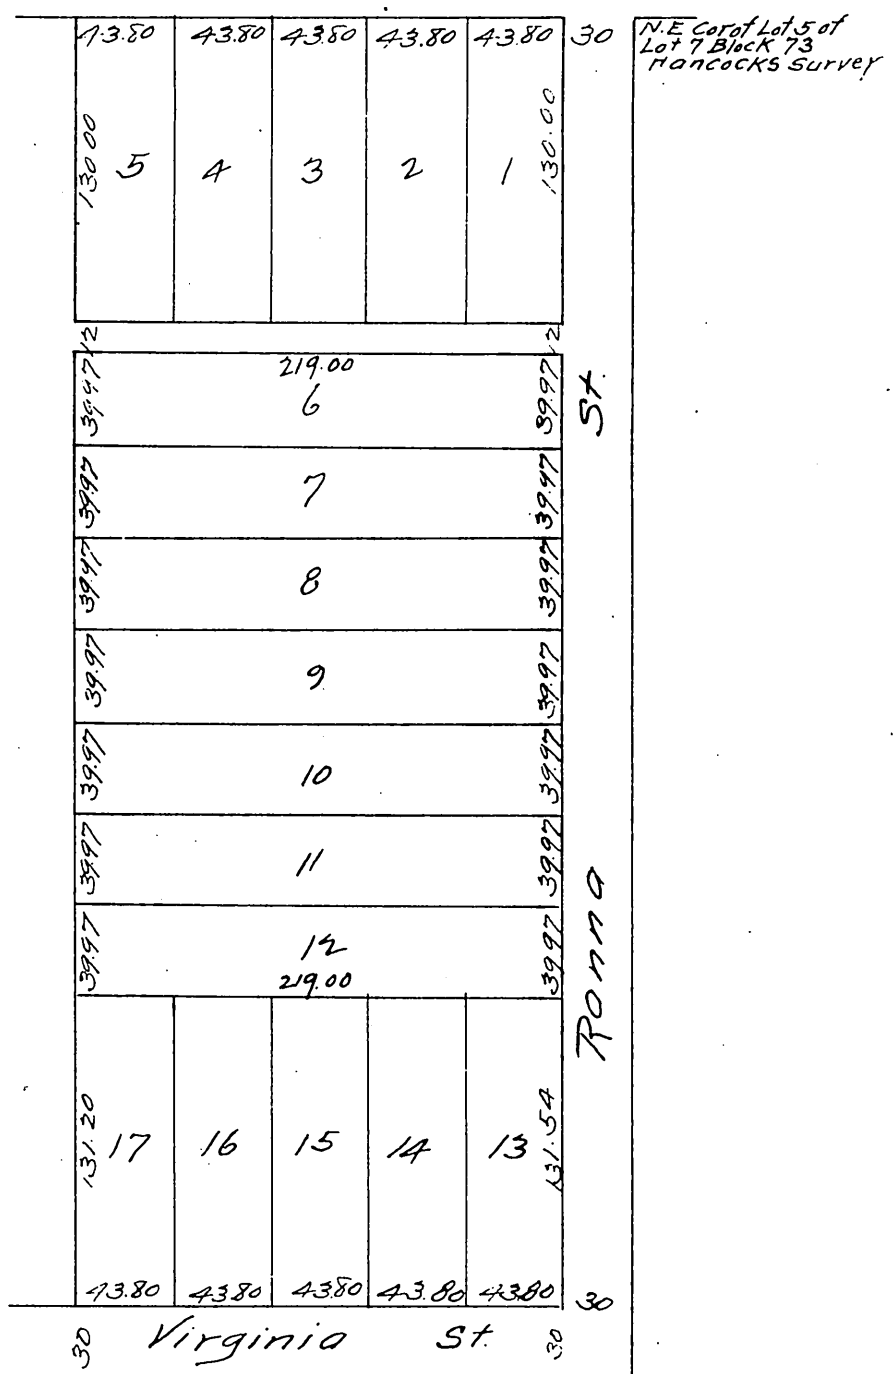 43.80 43.80 43.80 43.80 43.80 30
N.E Cor of Lot 5 of
Lot 7 Block 73
Hancocks Survey
130.00 5 4 3 2 1 130.00
12 12
219.00
39.97 6 39.97
St.
39.97 7 39.97
39.97 8 39.97
39.97 9 39.97
39.97 10 39.97
39.97 11 39.97
Ronna
39.97 12 39.97
219.00
131.20 17 16 15 14 13 131.54
43.80 43.80 43.80 43.80 43.80 30
30 Virginia St. 30